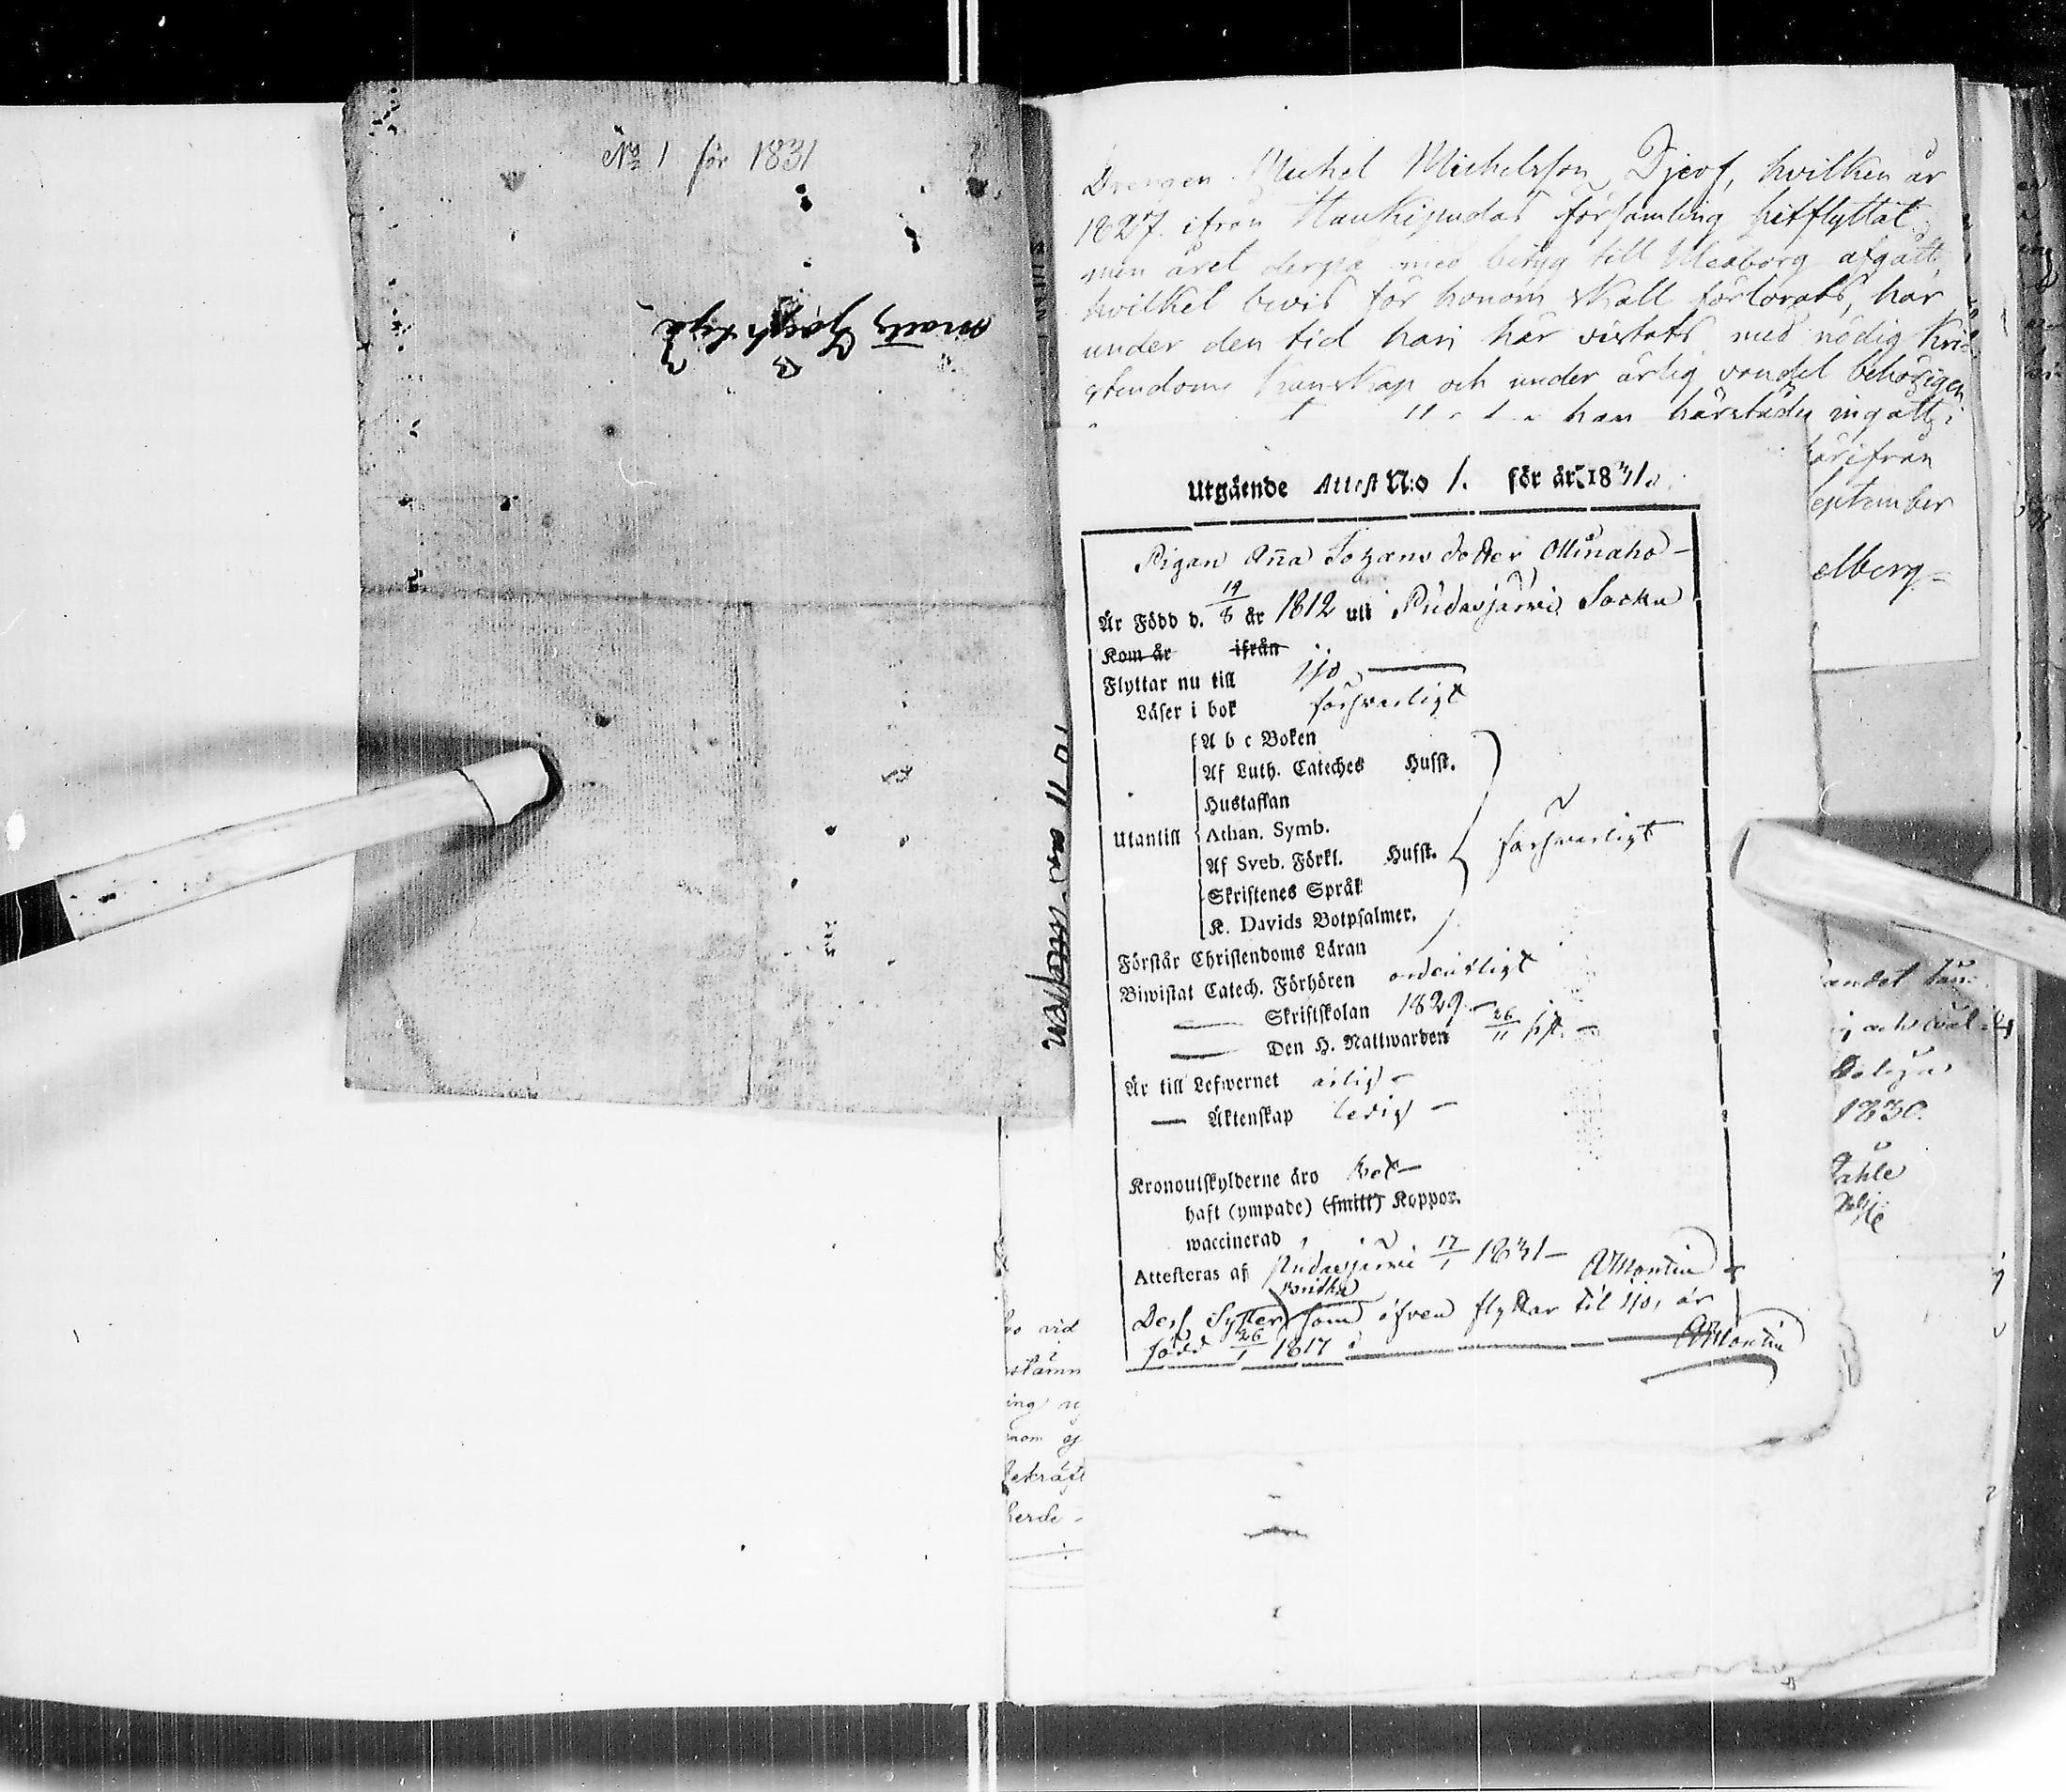 No 1 för 1831
Drengen Michel Michelsson Djerf, hvilken år
1827 ifrån Haukipudas församling hitflyttat;
men året derpå med betyg till Uleåborg afgått,
hvilket bevis för honom skall förlorats, har
under den tid han här vistats med nödig Kri-
stendoms kunskap och under ärlig vandel behörigen
han härstädes ingått i
härifrån
eptember
elberg
Utgående Attest N:o 1. för år 1831.
Pigan Aña Johans dotter Ollinaho
Är Född d. 19/8 år 1812 uti Pudasjärvi Sockn
Kom år ifrån
Flyttar nu till Ijo
Läser i bok försvarligt
A b c Boken
Af Luth. Cateches Husst.
Hustaflan
Utantill Athan. Symb.
Af Sveb. Förkl. Husst. försvarligt
Skriftenes Språk
K. Davids Botpsalmer.
Förstår Christendoms Läran
Biwistat Catech. Förhören ordentligt
Skriftskolan 1829
Den H. Nattwarden 26/11 sist.
Är till Lefwernet ärlig
Äktenskap ledig
Kronoutskylderne äro bet
haft (ympade) (smitt) Koppor.
waccinerad
Attesteras af Pudasjärvi 17/1 1831 Montin
Britha
Dess Syster som äfven flyttar til Ijo, är
född 26/1 1817 Montin
andet
1830.
ahle
vid
stämn
ing
nom
ekräft
erde